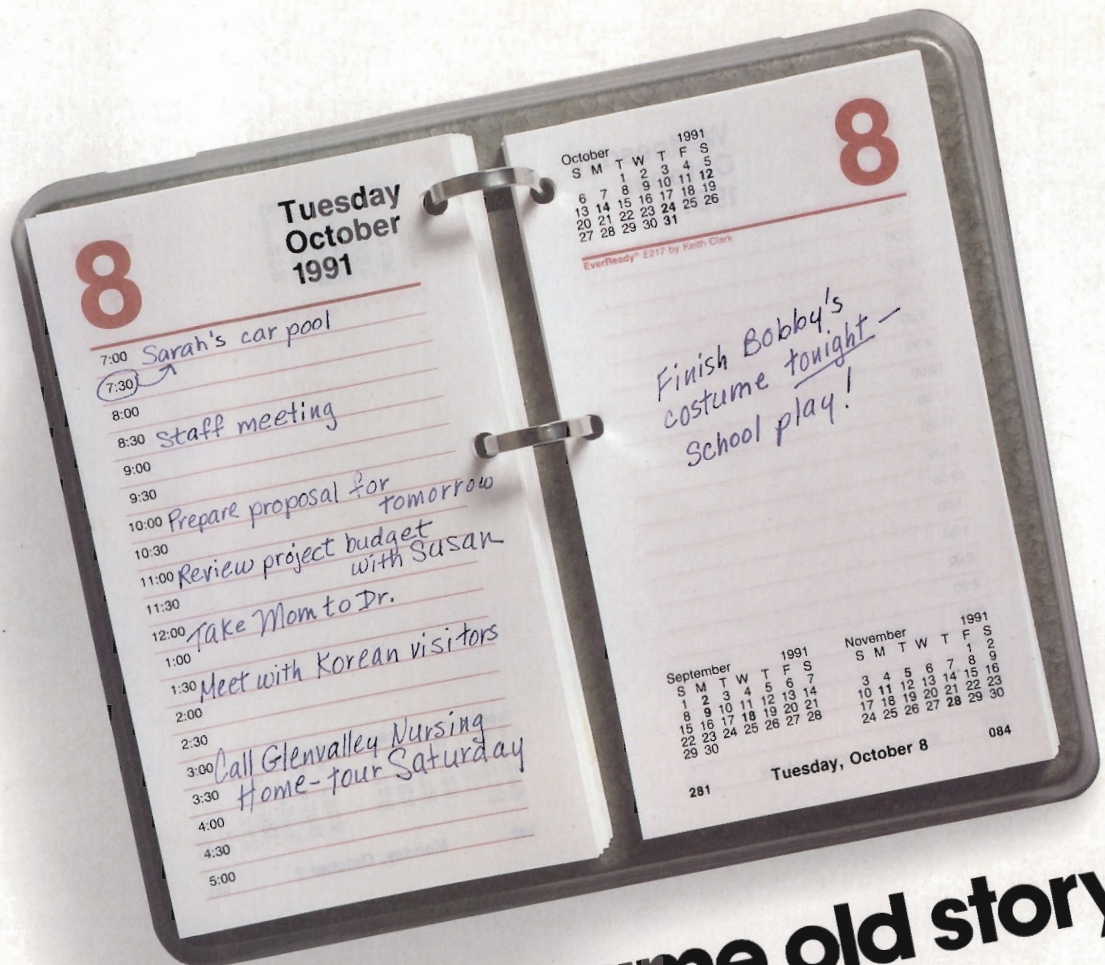 8
Tuesday
October
1991
7:00 Sarah's car pool
7:30
8:00
8:30 Staff meeting
9:00
9:30
10:00 Prepare proposal for
tomorrow
10:30
11:00 Review project budget
with Susan
11:30
12:00 Take Mom to Dr.
1:00
1:30 Meet with Korean visitors
2:00
2:30
3:00 Call Glenvalley Nursing
3:30 Home - tour Saturday
4:00
4:30
5:00
October 1991
S M T W T F S
1 2 3 4 5
6 7 8 9 10 11 12
13 14 15 16 17 18 19
20 21 22 23 24 25 26
27 28 29 30 31
8
EverReady® E217 by Keith Clark
Finish Bobby's
costume tonight —
School play!
September 1991
S M T W T F S
1 2 3 4 5 6 7
8 9 10 11 12 13 14
15 16 17 18 19 20 21
22 23 24 25 26 27 28
29 30
November 1991
S M T W T F S
1 2
3 4 5 6 7 8 9
10 11 12 13 14 15 16
17 18 19 20 21 22 23
24 25 26 27 28 29 30
281 Tuesday, October 8 084
old story